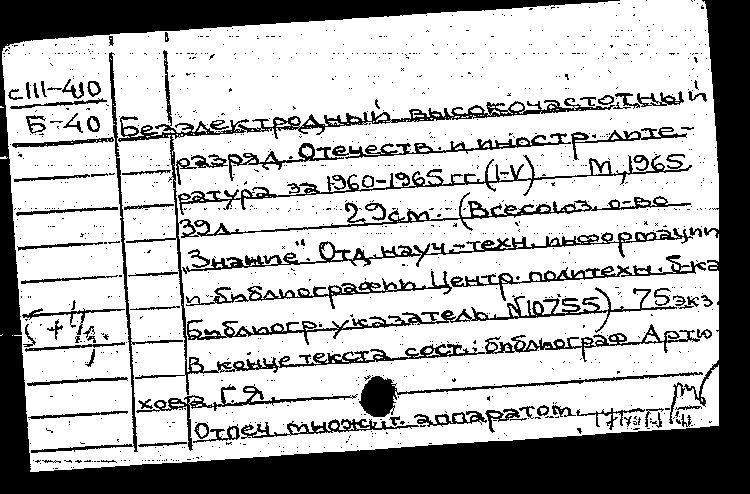 сIII-410
Б-40
Безэлектродный высокочастотный
разряд. Отечеств. и иностр. лите-
ратура за 1960-1965 гг. (I-V). М., 1965.
39л. 29см. (Всесоюз. о-во
„Знание". Отд. науч.-техн. информации
и библиографии. Центр. политехн. б-ка
Библиогр. указатель. №10755). 75экз.
В конце текста сост.: библиограф Артю-
хова, Г.Я.
Отпеч. множит. аппаратом.